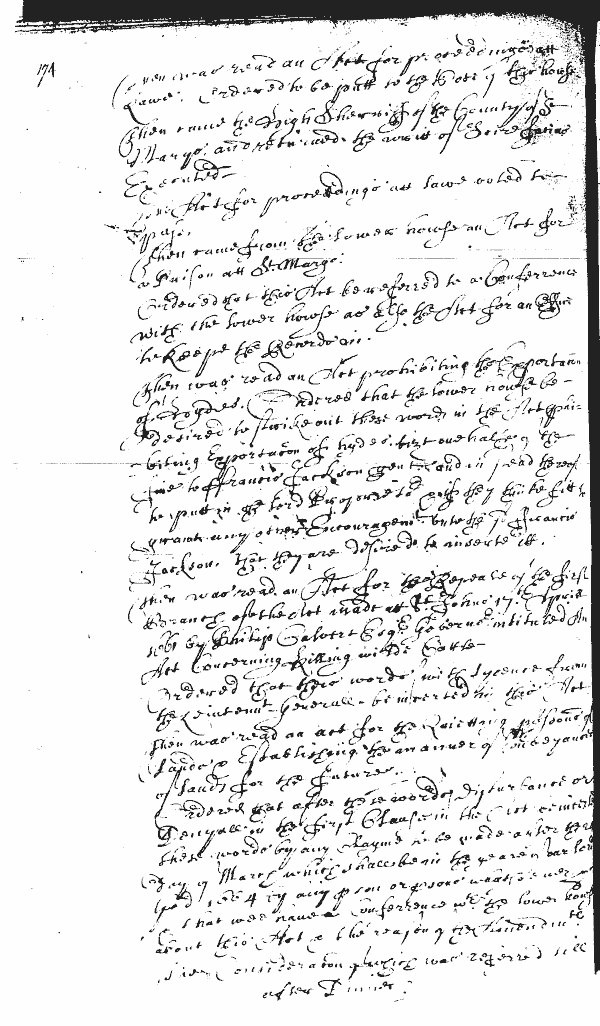 174
Then was read an Act for proceedings att
Lawe. Ordered to be putt to the Vote of this house
Then came the High Sherriff of the County of St
Marys, and returned the writt of Scire facias
Executed
Act for proceedings att lawe voted to
passe.
Then came from the Lower howse an Act for
a Prison att St Maryes
Ordered that this Act be referred to a Conferrence
with the lower howse as also the Act for an
to Keepe the Records in.
Then was read an Act prohibiting the Exportacon
of Hydes. Ordered that the lower howse be
desired to strike out these words in the Act
biting Exportacon of hydes one halfe of the
fine to ffrancis Jackson gent and in stead thereof
to putt in the Lord Propriet, if they thinke fitt to
graunt any other Encouragemt unto the sd ffrancis
Jackson, that they are desired to inserte itt.
Then was read an Act for the Repeale of the first
Branch of the Act made att St Johns 17th Aprill
by Philip Calvert Esqr Governr intituled An
Act Concerning killing wilde Cattle
Ordered that these words with Lycence from
the Leivtennt Generall be inserted in this Act
Then was read an act for the Quietting possions of
Lands & Establishing the manner of Conveyances
of lands for the future.
Ordered that after these words disturbance or
Denyall in the first Clause in the Act
these words by any Clayme to be made after the
day of March which shall be in the yeare of our Lord
1664 by any pson or psons whatsoever
that wee have a Conferrence wth the lower howse
about this Act & the reason of the Amendmts
Consideracon which was referred till
after Dinner